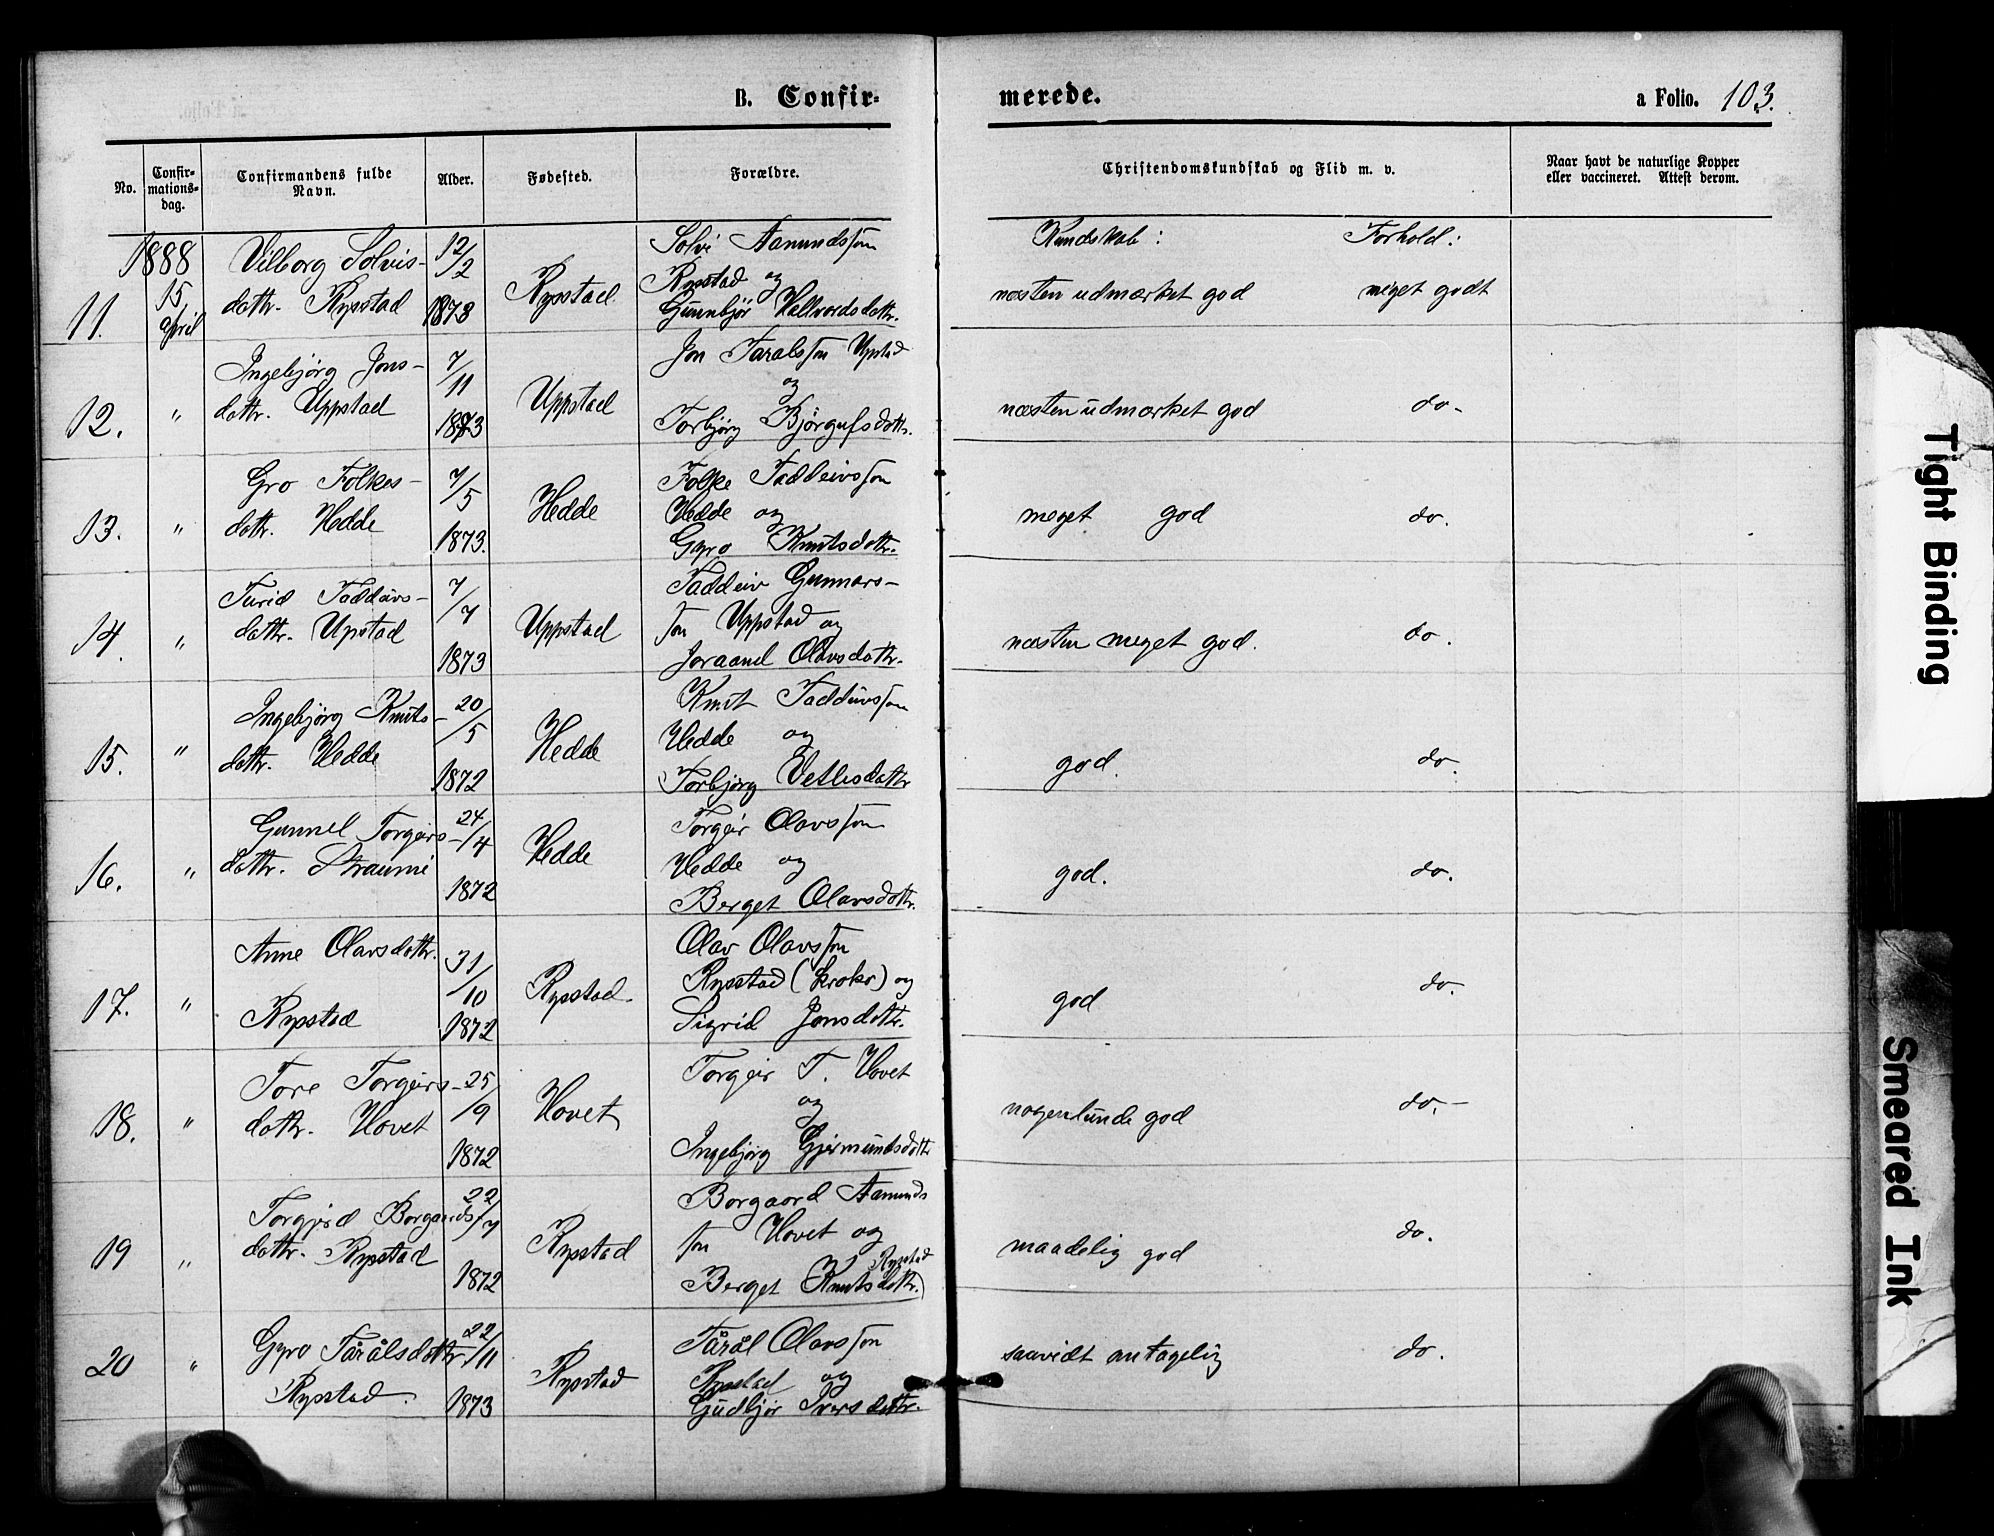 B. Confir-
merede.
a Folio. 103.
No.
Confir-
mations-
dag.
Confirmandens fulde
Navn.
Alder.
Fødested.
Forældre.
Christendomskundskab og Flid m. v.
Naar havt de naturlige Kopper
eller vaccineret. Attest derom.
Kundskab:
Forhold:
1888
11.
15
april
Vilborg Solvis-
dottr. Rysstad
12/2
1873
Rysstad
Solvi Aamundsson
Rysstad og
Gunnbjør Hallvordsdottr.
næsten udmærket god
meget godt
12.
"
Ingebjørg Jons-
dottr. Uppstad
7/11
1873
Uppstad
Jon Taralsson Upstad
og
Torbjørg Bjørgufsdottr.
næsten udmærket god
do.
13.
"
Gro Folkes-
dottr. Hedde
7/5
1873.
Hedde
Folke Taddeivsson
Hedde og
Gyro Knutsdottr.
meget god
do.
14.
"
Turid Taddeivs-
dottr. Upstad
7/7
1873
Uppstad
Taddeiv Gunnars-
son Uppstad og
Joraand Olavsdottr.
næsten meget god.
do.
15.
"
Ingebjørg Knuts-
dottr. Hedde
20/5
1872
Hedde
Knut Taddeivsson
Hedde og
Torbjørg Vetlesdottr
god.
do.
16.
"
Gunnel Torgeirs-
dottr. Straume
24/4
1872
Hedde
Torgeir Olavsson
Hedde og
Berget Olavsdottr.
god.
do.
17.
"
Anne Olavsdottr.
Rysstad
31/10
1872
Rysstad.
Olav Olavsson
Rysstad (Krokr) og
Sigrid Jonsdottr.
god
do.
18.
"
Tore Torgeirs-
dottr. Hovet
25/9
1872
Hovet
Torgeir T. Hovet
og
Ingebjørg Gjermundsdottr
nogenlunde god
do.
19
"
Torgjerd Borgaards
dottr. Rysstad
22/7
1872
Rysstad
Borgaard Aamunds
son Hovet og
Rysstad
Berget Knutsdottr.)
maadelig god
do.
20
"
Gyro Tårålsdottr
Rysstad.
22/11
1873
Rysstad
Tårål Olavsson
Rysstad og
Gudbjør Iversdottr.
saavidt antagelig
do.
Tight Binding
Smeared Ink